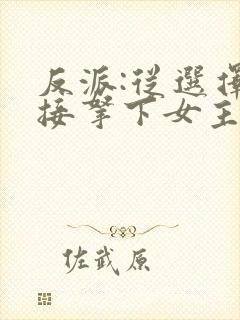 反派:從選擇
接拏下女主
佐武原